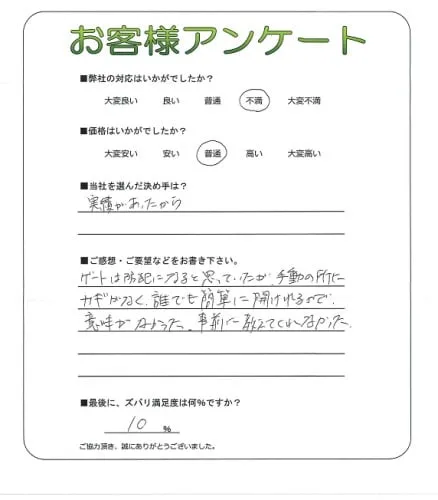 お客様アンケート
■弊社の対応はいかがでしたか？
大変良い 良い 普通 不満 大変不満
■価格はいかがでしたか？
大変安い 安い 普通 高い 大変高い
■当社を選んだ決め手は？
実績があったから
■ご感想・ご要望などをお書き下さい。
ゲートは防犯になると思っていたが、手動の所に
カギがなく、誰でも簡単に開けれるので、
意味がなかった。事前に教えてくれなかった。
■最後に、ズバリ満足度は何%ですか？
10 %
ご協力頂き、誠にありがとうございました。